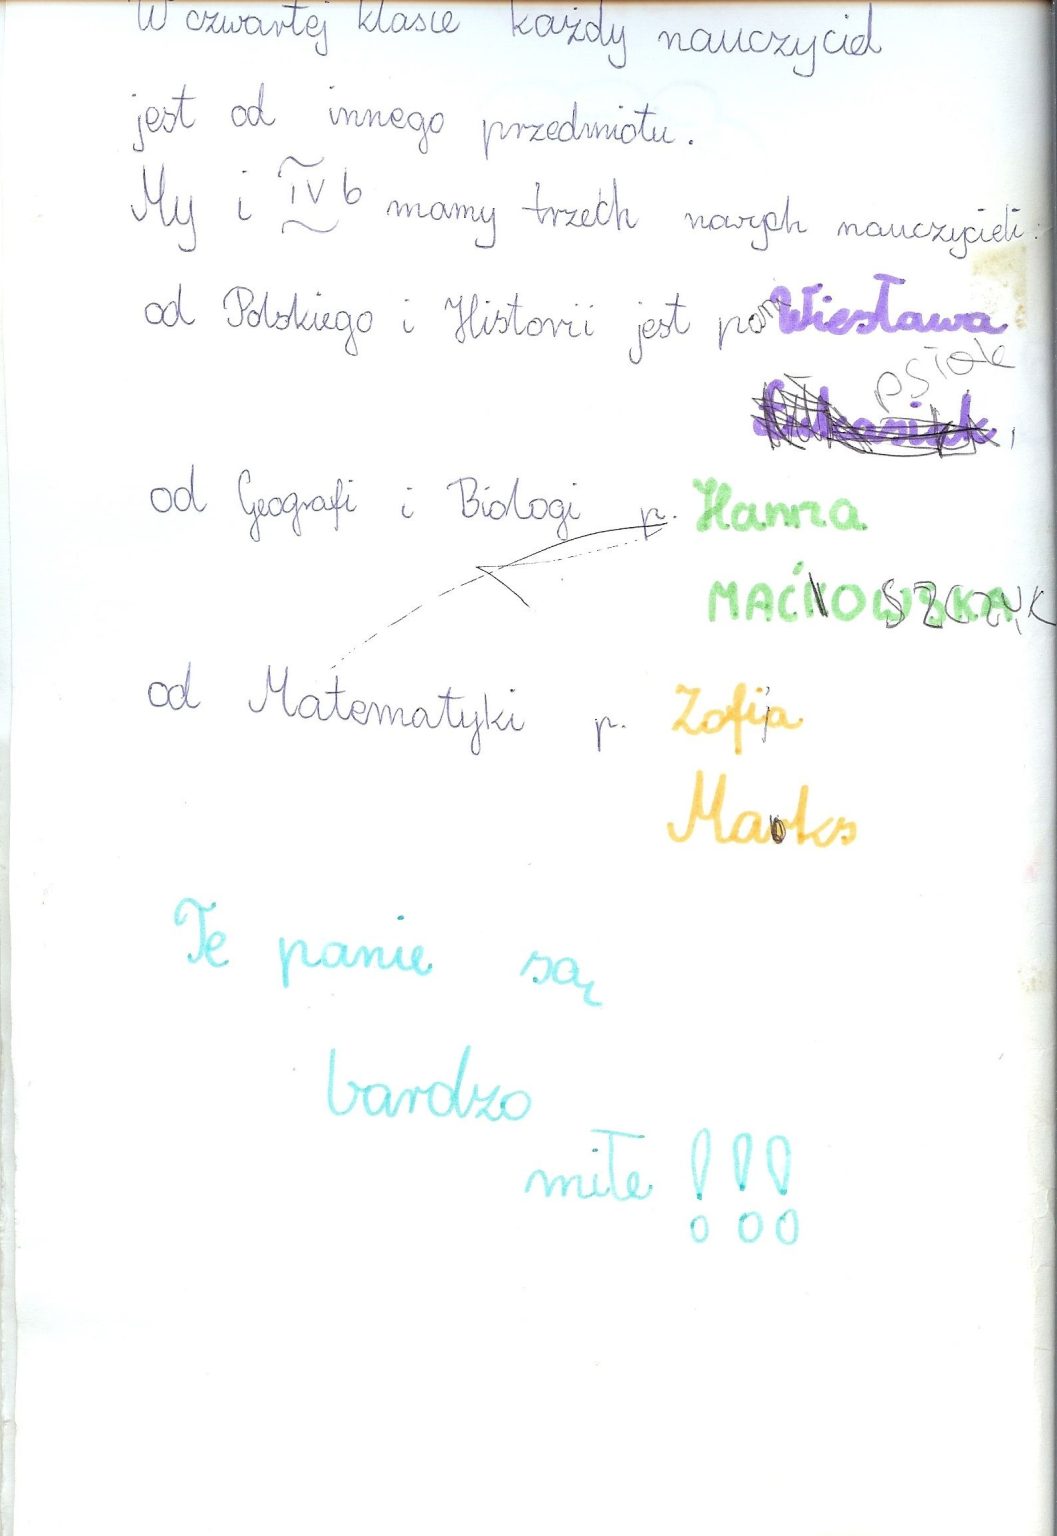 W czwartej klasie każdy nauczyciel
jest od innego przedmiotu.
My i IV b mamy trzech nowych nauczycieli:
od Polskiego i Historii jest pani Wiesława
psiak
od Geografi i Biologi p. Hanna
MAĆKOWSKA SZCZĄK
od Matematyki p. Zofija
Marks
Te panie są
bardzo
miłe !!!